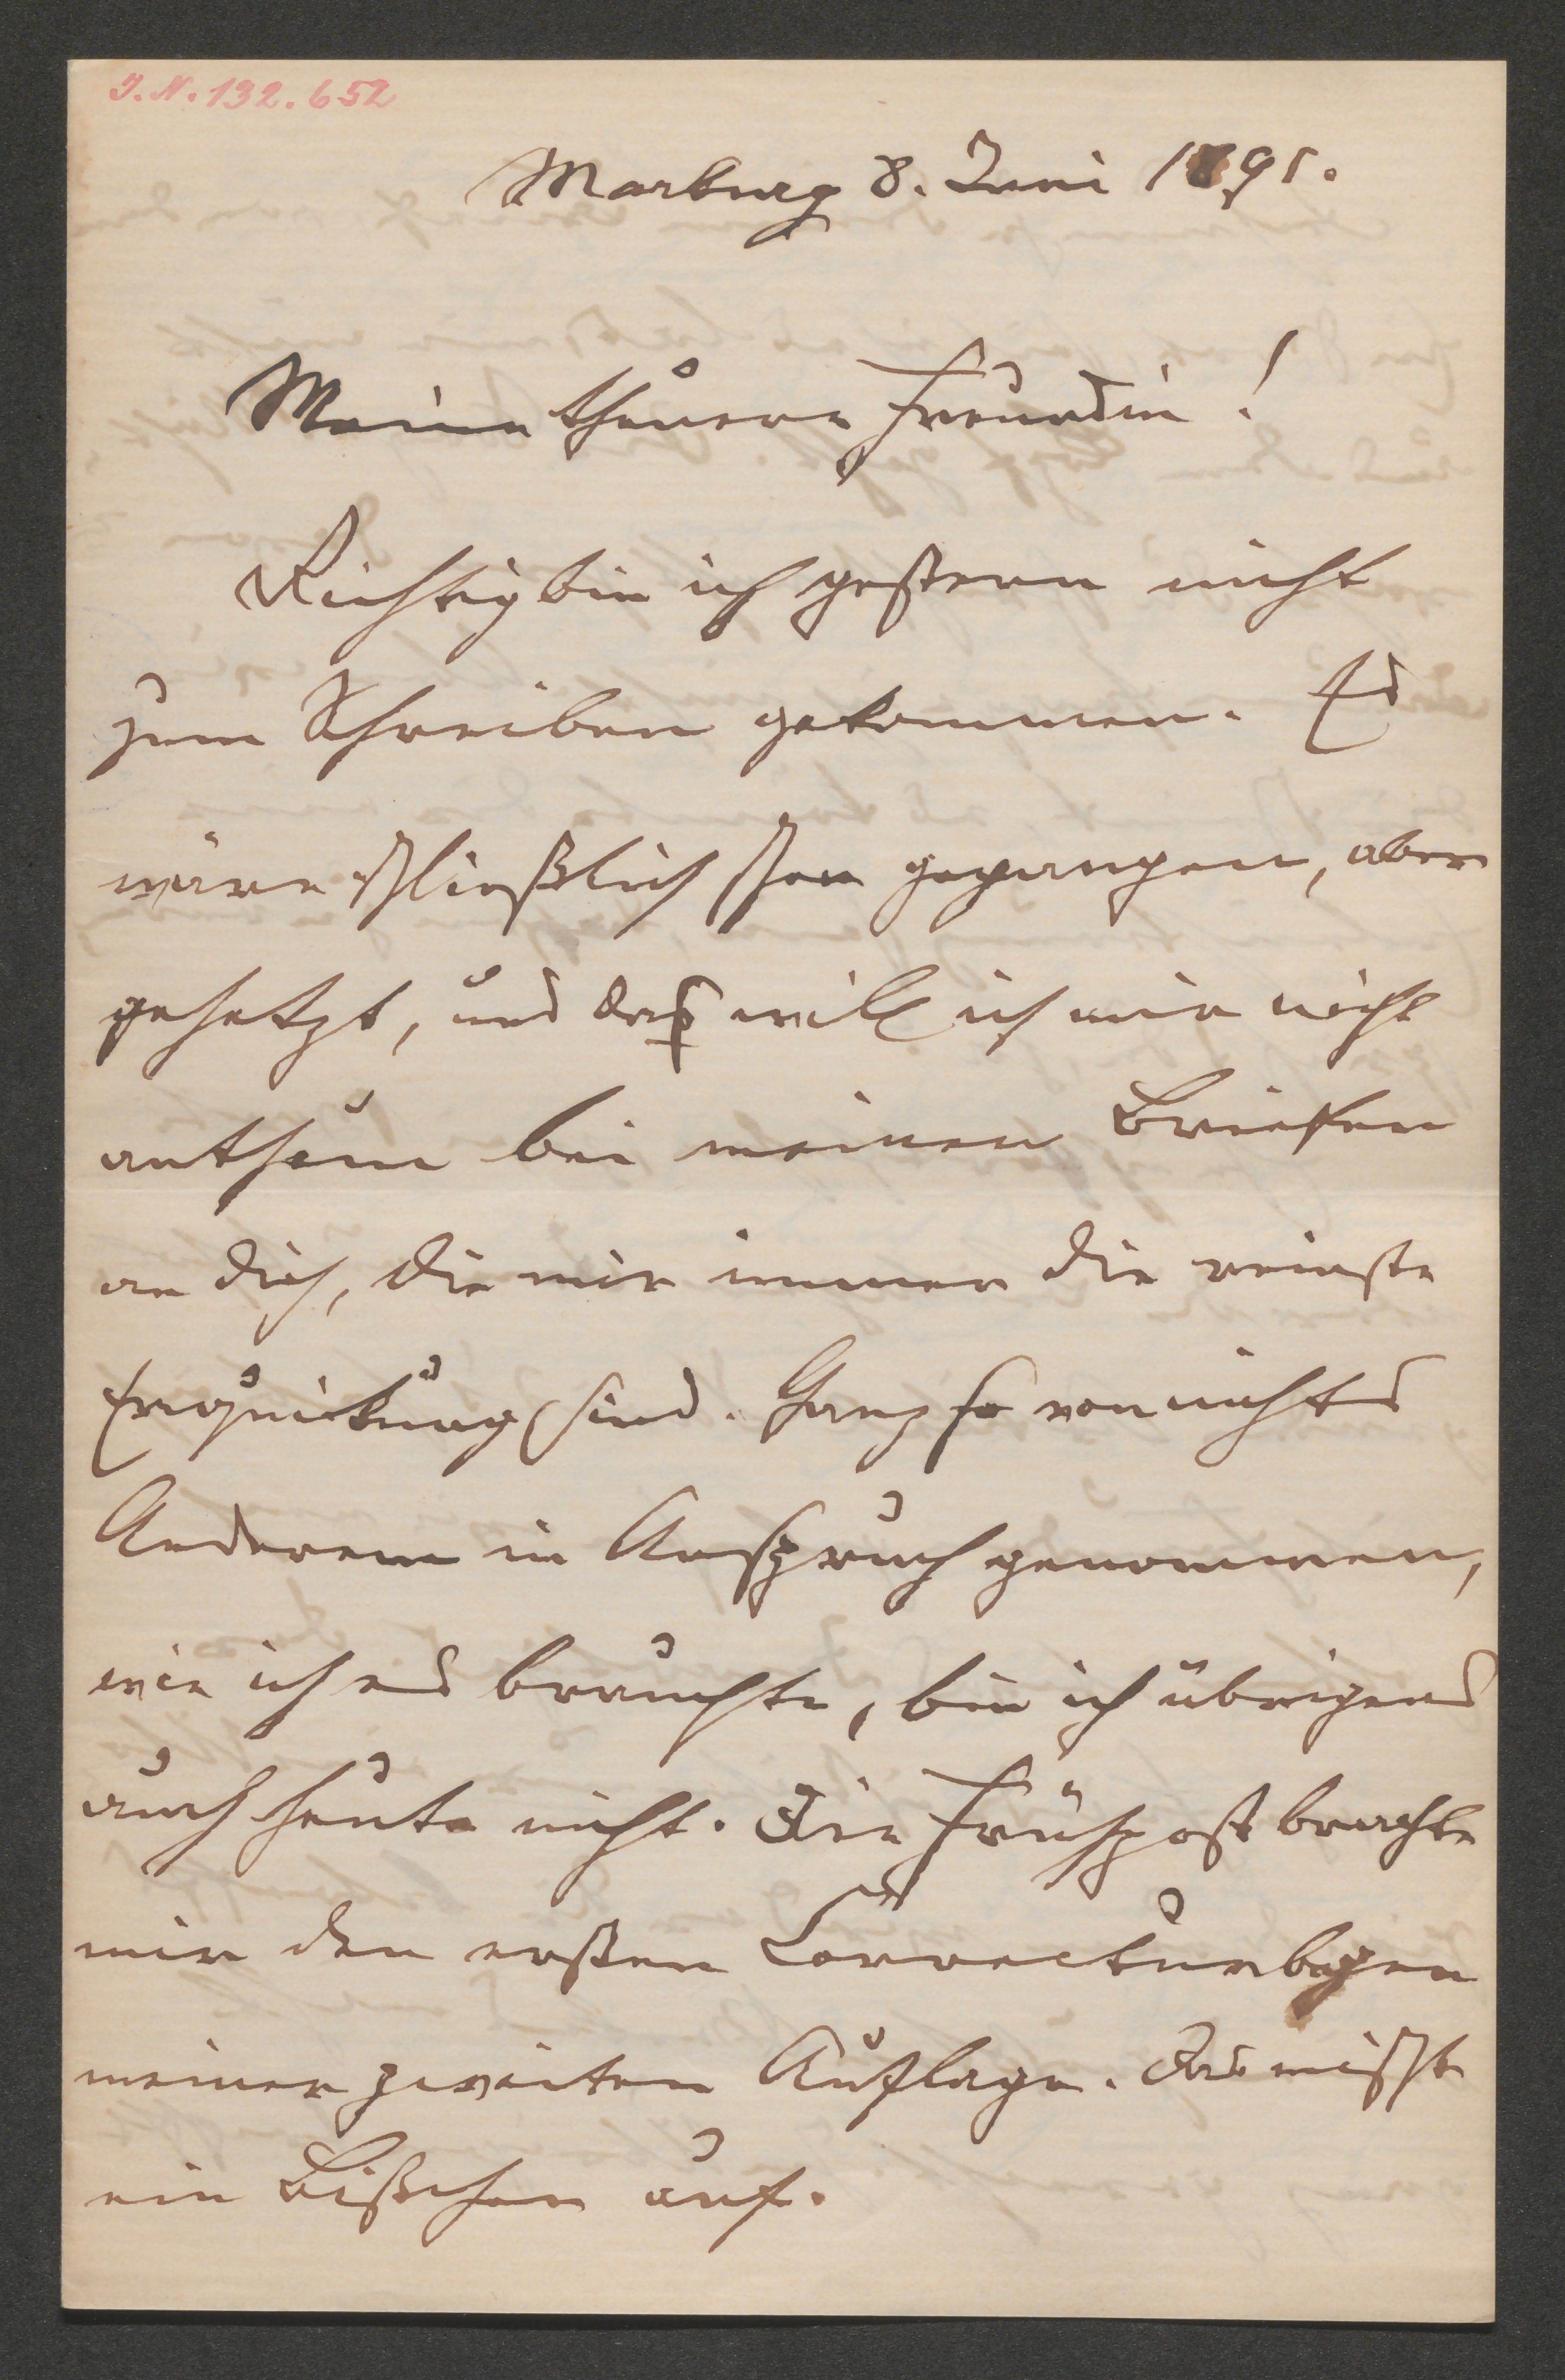 J. N. 132.652
Marburg 8. Juni 1891.
Meine theuere Freundin!
Richtig bin ich gestern nicht
zum Schreiben gekommen. Es
wäre schließlich schon gegangen, aber
gehetzt, und das will ich mir nicht
anthun bei meinen Briefen
an dich, die mir immer die reinste
Erquickung sind. Ganz so von nichts
Anderem in Anspruch genommen,
wie ich es brauchte, bin ich übrigens
auch heute nicht. Die Frühpost brachte
mir den ersten Correcturbogen
meiner zweiten Auflage. Das mischt
ein Bißchen auf.